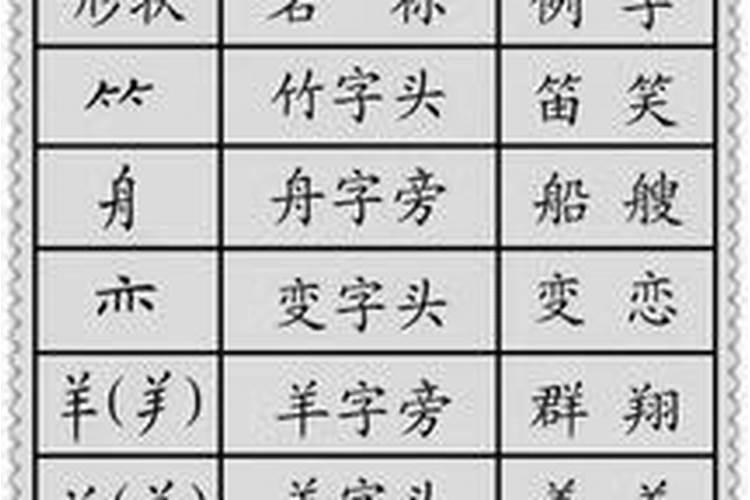 形状 名称 例字
⺮ 竹字头 笛 笑
舟 舟字旁 船 艘
亦 变字头 变 恋
羊(⺶) 羊字旁 群 翔